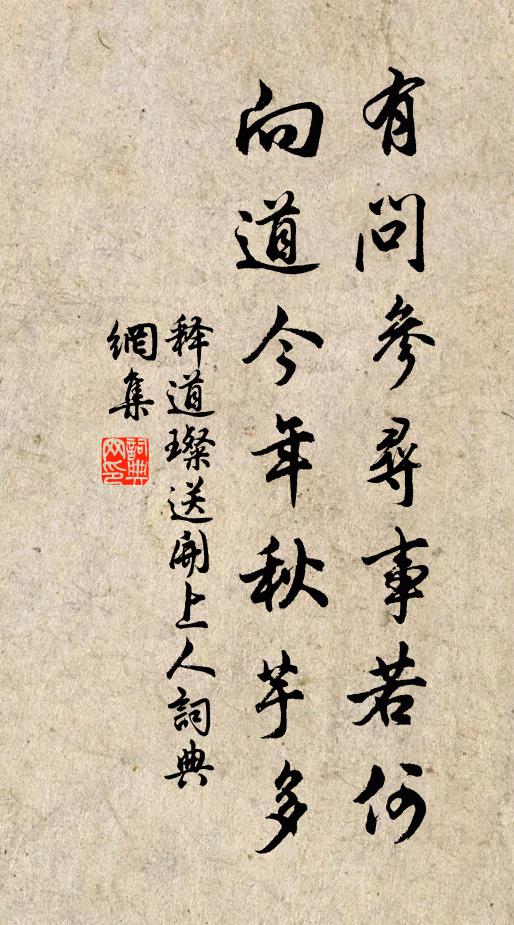 有問參尋事若何
向道今年秋芋多
释道璨送開上人詞典
網集
詞典
网印